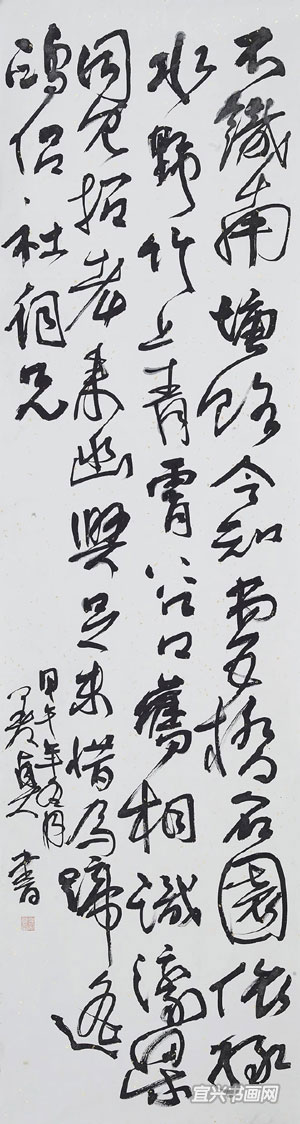 不識南塘路今知第五橋名園依綠
水野竹上青霄谷口舊相識濠梁
同見招來幽興足未惜馬蹄遙
鷗侶社詞兄
甲午年五月
書
宜兴书画网